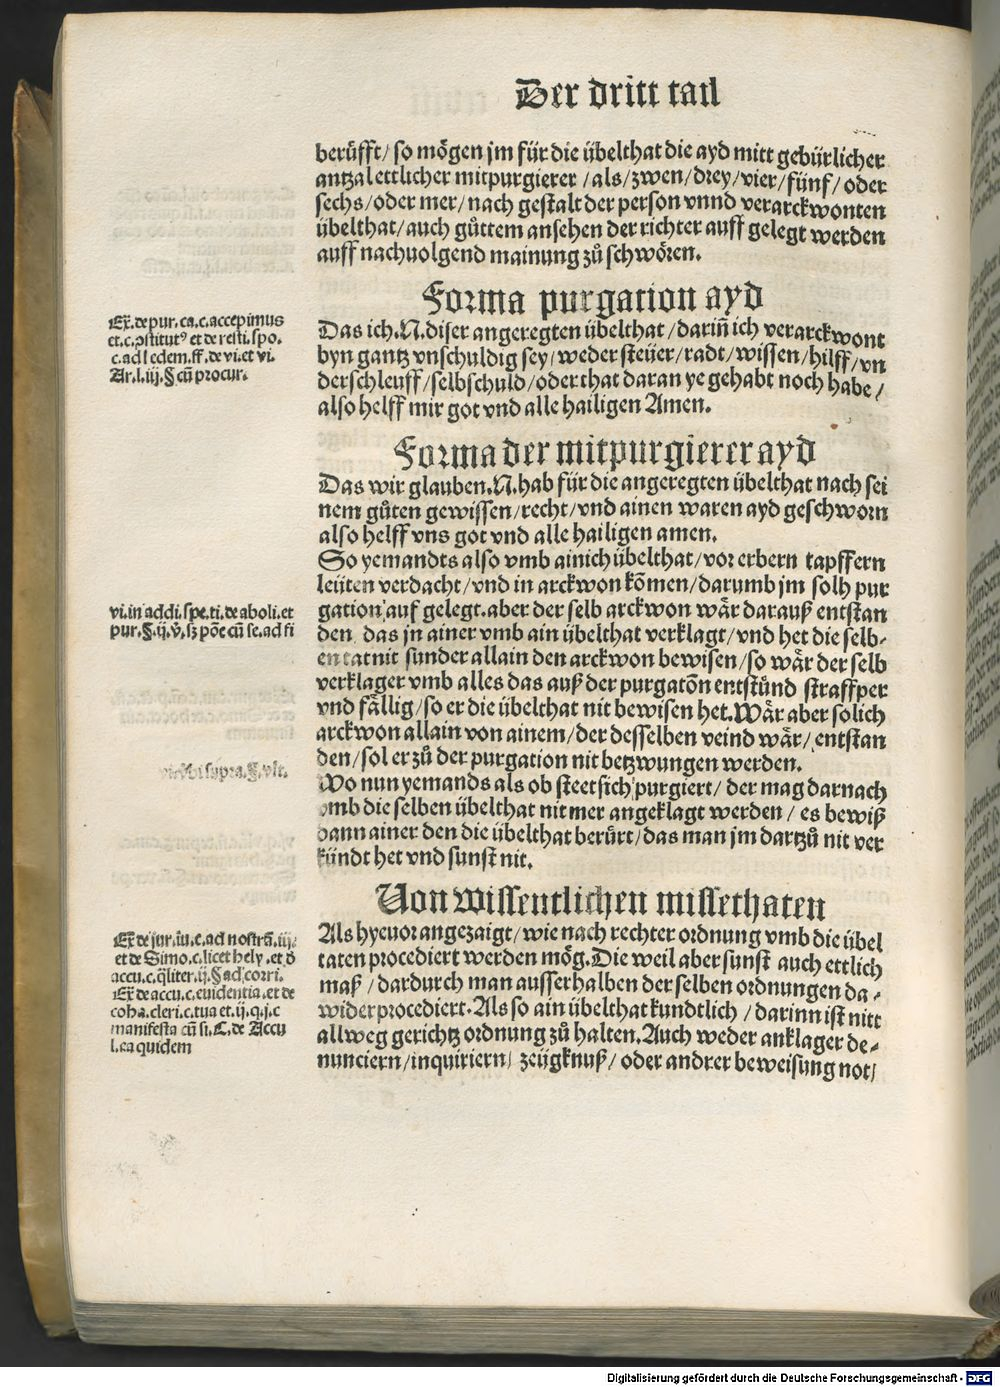 Der dritt tail
berüfft/ so mögen jm für die übelthat die ayd mitt gebürlicher
antzal ettlicher mitpurgierer /als/zwen/drey/vier/fünf/ oder
sechs/oder mer/ nach gestalt der person vnnd verarckwonten
übelthat/auch gůttem ansehen der richter auff gelegt werden
auff nachuolgend mainung zů schwören.
Forma purgation ayd
Ex. de pur. ca. c. accepimus
et. c. ꝯstitutꝰ et de resti. spo.
c. ad l edem. ff. de vi. et vi.
Ar. l. iij. § cū procur.
Das ich. N. diser angeregten übelthat/darin̄ ich verarckwont
byn gantz vnschuldig sey/weder steüer/radt/wissen/hilff/vn
derschleuff/selbschuld/oder that daran ye gehabt noch habe/
also helff mir got vnd alle hailigen Amen.
Forma der mitpurgierer ayd
Das wir glauben. N. hab für die angeregten übelthat nach sei
nem gůten gewissen/recht/vnd ainen waren ayd geschworn
also helff vns got vnd alle hailigen amen.
So yemandts also vmb ainich übelthat/vor erbern tapffern
leüten verdacht/vnd in arckwon kōmen/darumb jm solh pur
vi. in addi. spe. ti. de aboli. et
pur. §. ij. v̄. sꝫ pōe cū se. ad fi
gation auf gelegt. aber der selb arckwon wär darauß entstan
den das jn ainer vmb ain übelthat verklagt/vnd het die selb-
en tat nit sunder allain den arckwon bewisen/so wär der selb
verklager vmb alles das auß der purgatōn entstůnd straffper
vnd fällig/so er die übelthat nit bewisen het. Wär aber solich
arckwon allain von ainem/der desselben veind wär/entstan
den/sol er zů der purgation nit betzwungen werden.
supra. §. vlt.
Wo nun yemands als ob steet sich purgiert/ der mag darnach
vmb die selben übelthat nit mer angeklagt werden/ es bewiß
dann ainer den die übelthat berůrt/das man jm dartzů nit ver
kündt het vnd sunst nit.
Von wissentlichen missethaten
Ex de jur. iu. c. ad nostrā. iij.
et de Simo. c. licet hely. et ð
accu. c. q̄liter. ij. § ad corri.
Ex de accu. c. euidentia. et de
coha. cleri. c. tua et. ij. q. j. c
manifesta cū si. C. de Accu
l. ea quidem
Als hyeuor angezaigt/wie nach rechter ordnung vmb die übel
taten procediert werden mög. Die weil aber sunst auch ettlich
maß/dardurch man ausserhalben der selben ordnungen da-
wider procediert. Als so ain übelthat kundtlich/darinn ist nitt
allweg gerichtz ordnung zů halten. Auch weder anklager de-
nunciern/inquiriern/ zeügknuß/ oder andrer beweisung not/
Digitalisierung gefördert durch die Deutsche Forschungsgemeinschaft - DFG